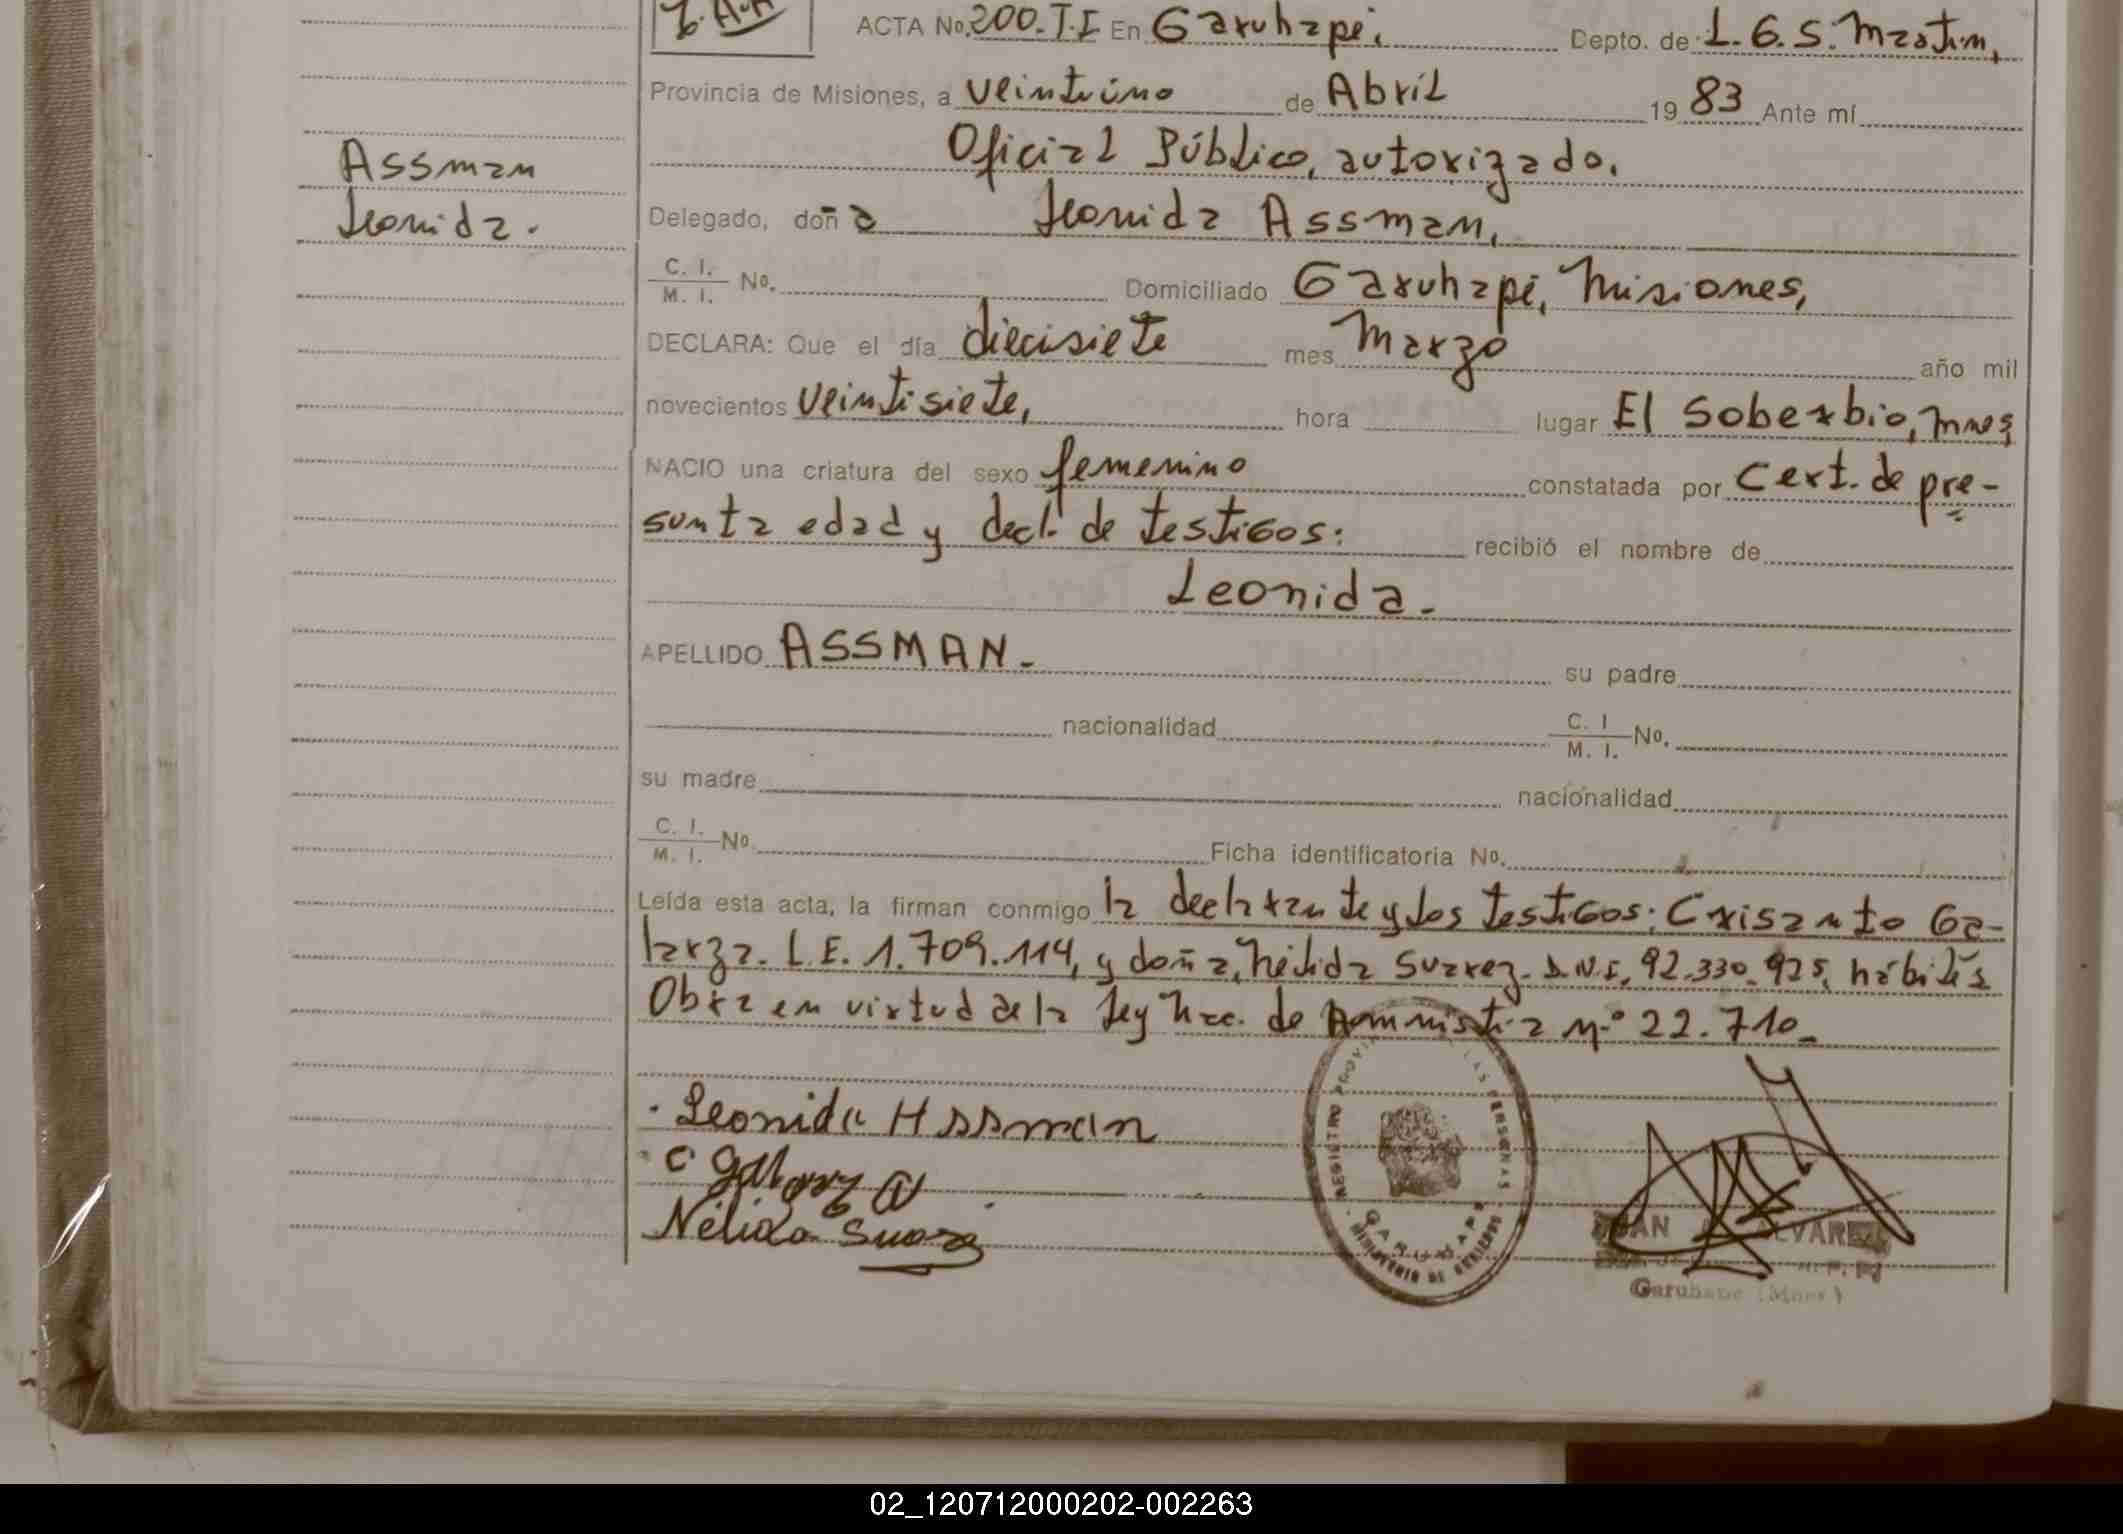 ACTA No. 200.T.I En Garuhapé, Depto. de L.G.S. Martin,
Provincia de Misiones, a veintiúno de Abril 19 83 Ante mí
Oficial Público, autorizado.
Assman
Leonida.
Delegado, doña Leonida Assman,
C. I.
M. I. No. Domiciliado Garuhapé, Misiones,
DECLARA: Que el día diecisiete mes Marzo año mil
novecientos veintisiete, hora lugar El Soberbio, Mnes,
NACIO una criatura del sexo femenino constatada por Cert. de pre-
sunta edad y decl. de testigos: recibió el nombre de
Leonida.
APELLIDO ASSMAN. su padre
nacionalidad C. I
M. I. No.
su madre nacionalidad
C. I.
M. I. No. Ficha identificatoria No.
Leída esta acta, la firman conmigo la declarante y los testigos: Crisanto Ga-
larza. L.E. 1.709.114, y doña, Nélida Suarez. D.N.I. 92.330.925, hábiles
Obra en virtud de la Ley Nac. de Amnistia Nº 22.710.
Leonida Assman
C Galarza
Nélida Suarez
REGISTRO PROVI LAS PERSONAS
GARUHAPE
MINISTERIO DE GOBIERNO
ALVAREZ
Garuhape (Mnes)
02_120712000202-002263